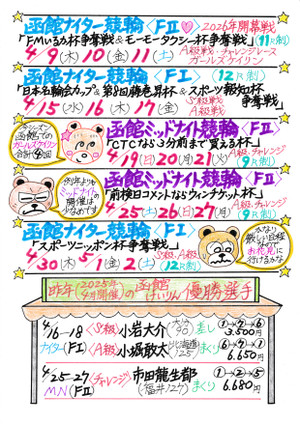 函館ナイター競輪〈FⅡ〉
2026年開幕戦
「FMいるか杯争奪戦&モーモータクシー杯争奪戦」(11R制)
4/9(木)10(金)11(土)
A級戦・チャレンジレース
ガールズケイリン
函館ナイター競輪〈FⅠ〉(12R制)
「日本名輪会カップ&第9回藤巻昇杯&スポーツ報知杯争奪戦」
4/15(水)16(木)17(金)
S級戦
A級戦
函館での
ガールズケイリン
合計4回
函館ミッドナイト競輪〈FⅡ〉
「CTCなら3分前まで買える杯」
4/19(日)20(月)21(火)
A級・チャレンジ
(9R制)
例年よりも
ミッドナイト
開催は
少なめです
函館ミッドナイト競輪〈FⅡ〉
「前検日コメントならウィンチケット杯」
4/25(土)26(日)27(月)
A級・チャレンジ
(9R制)
函館ナイター競輪〈FⅠ〉
「スポーツニッポン杯争奪戦」
4/30(木)5/1(金)2(土)
S級、A級戦
(12R制)
かなり
厳しい日程
なので
お花見に
行けるかな
昨年(2025年4月開催)の函館けいりん優勝選手
4/16-18
ナイター(FⅠ)
〈S級〉小岩大介
差し
①→⑦→⑥
3.500円
〈A級〉小堀敢太
(北海道/125)
まくり
①→⑦→⑥
6.650円
4/25-27
MN(FⅡ)
(チャレンジ)市田龍生都
(福井/127)
まくり
①→②→⑤
6.680円